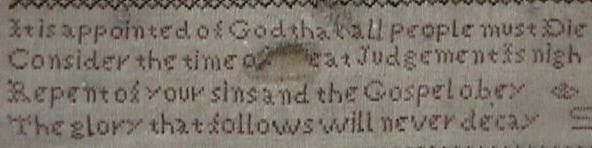 It is appointed of God that all people must Die
Consider the time of eat Judgement Is nigh
Repent of your sins and the Gospel obey
The glory that follows will never decay